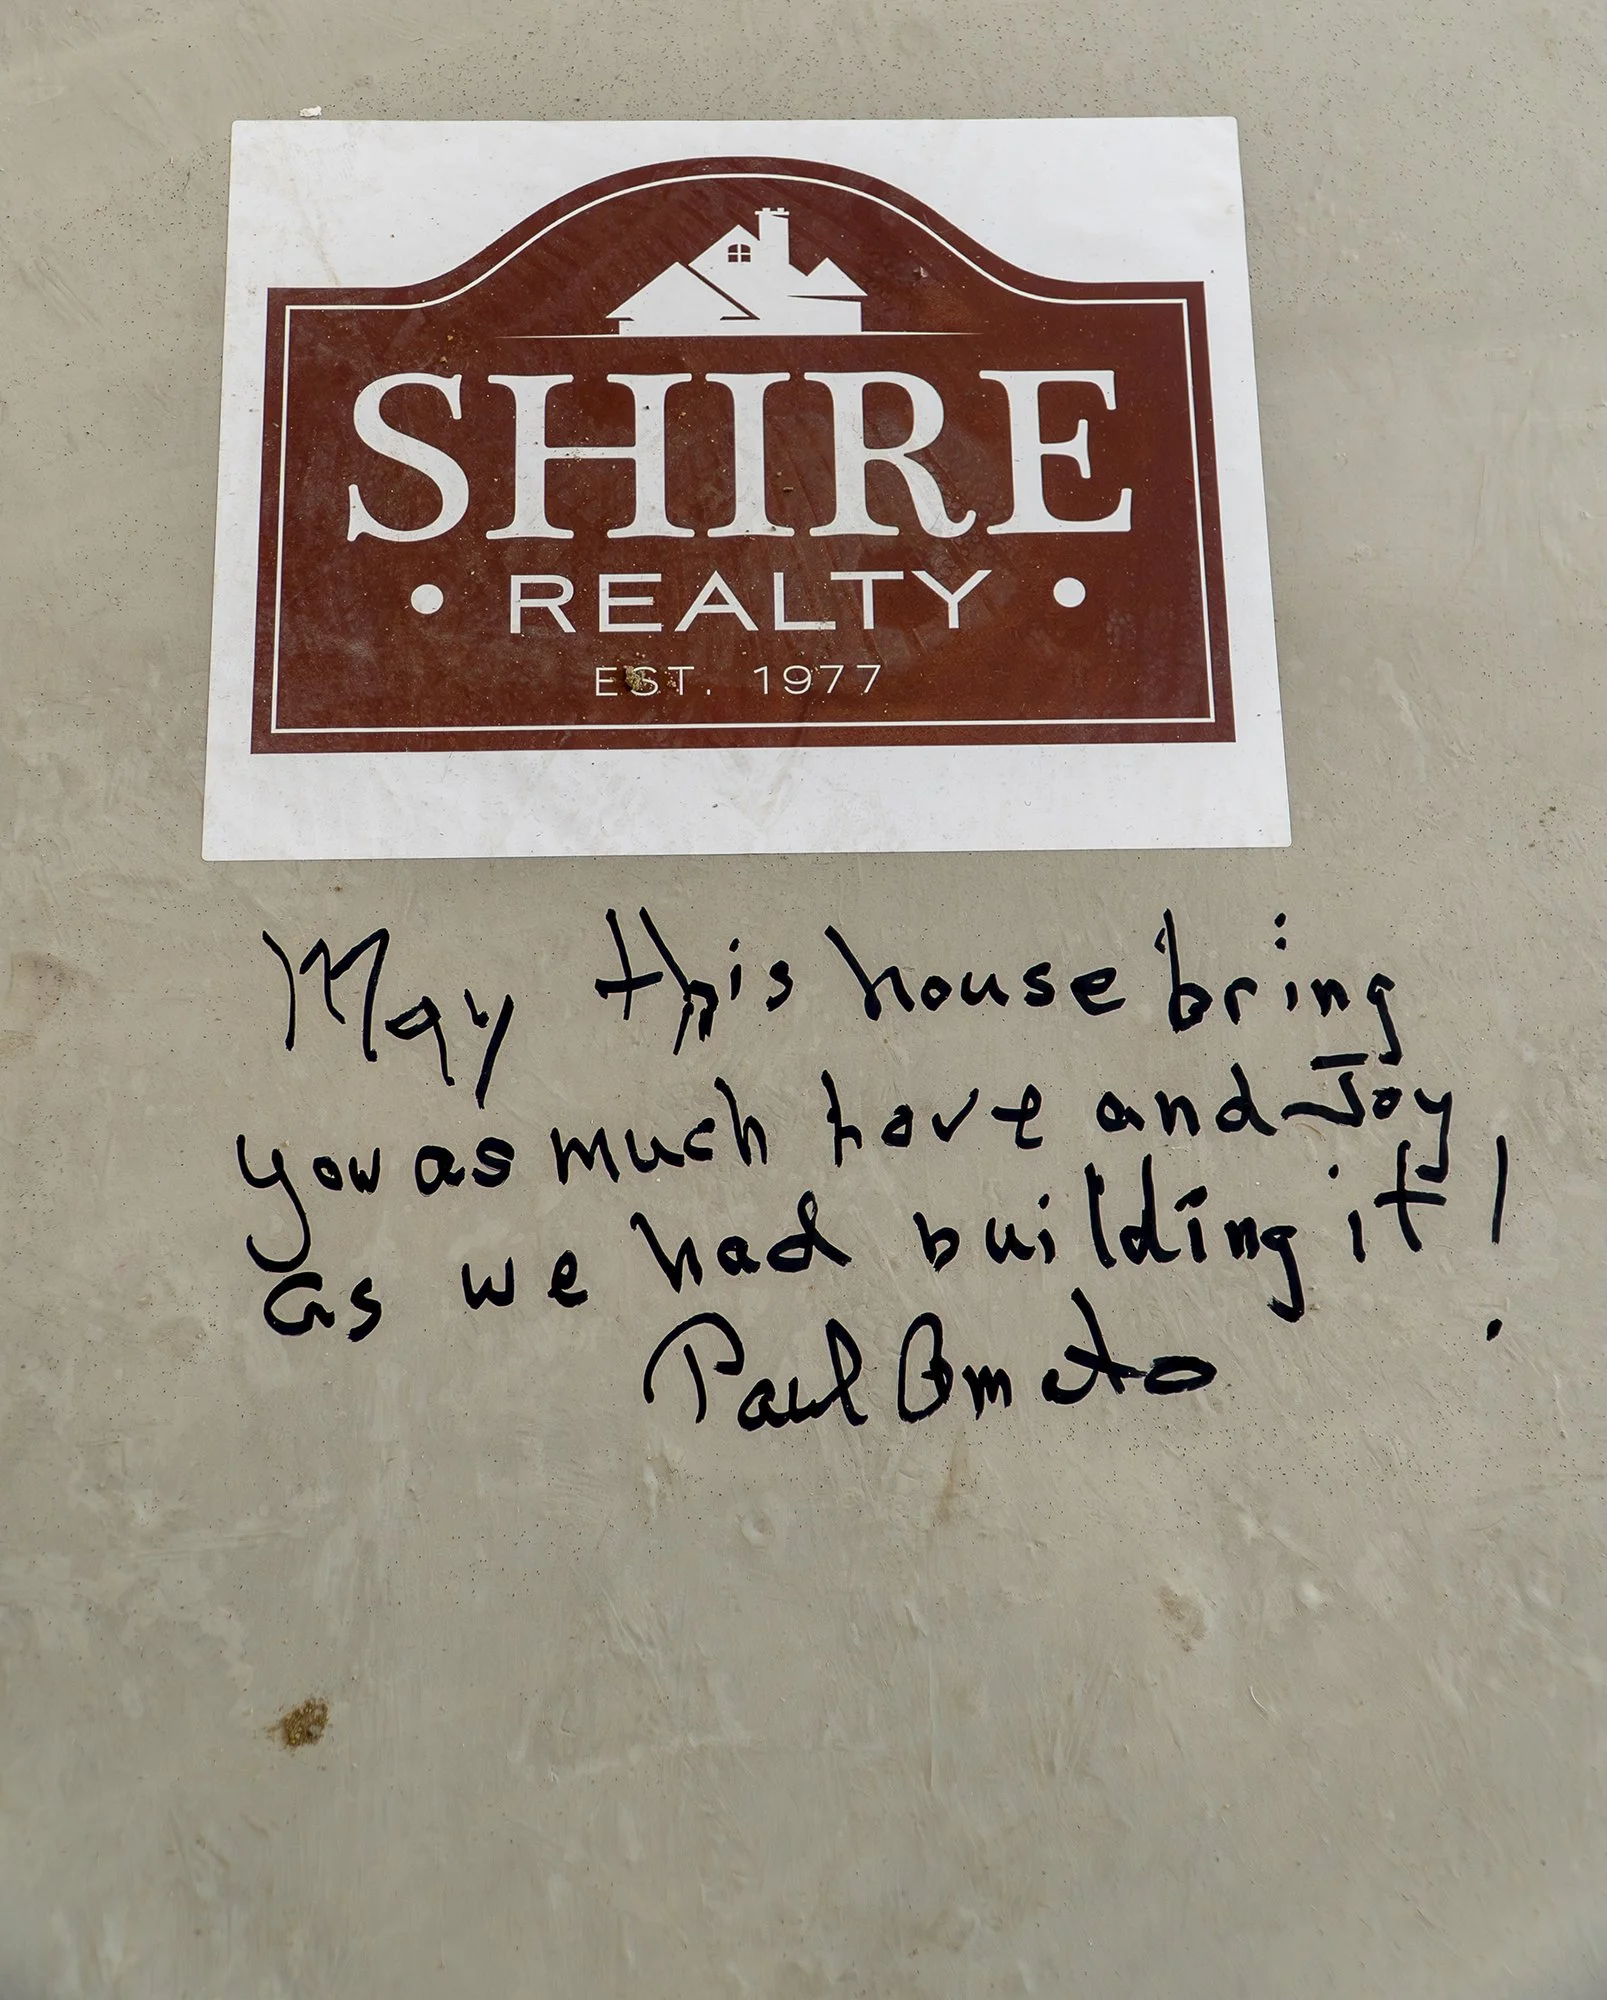 SHIRE
• REALTY •
EST. 1977
May this house bring
you as much Love and Joy
as we had building it!
Paul Ometo